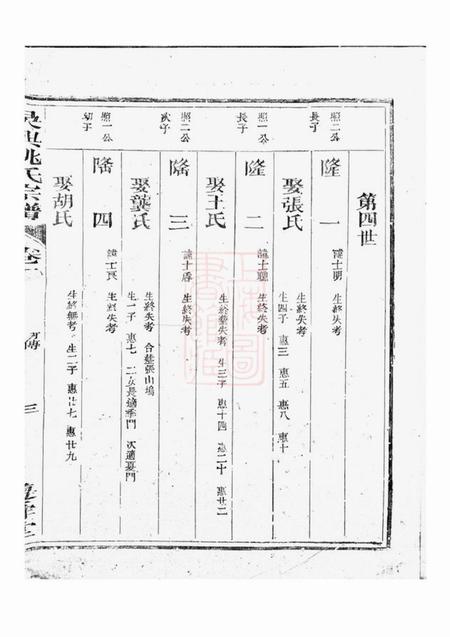 第四世
照二公
長子
隆一
諱士明 生終失考
娶張氏
生終失考
生四子 惠三 惠五 惠八 惠十
照一公
長子
隆二
諱士聰 生終失考
娶王氏
生終葬失考 生三子 惠十四 惠二十 惠廿二
照二公
次子
隆三
諱士 生終失考
娶龔氏
生終失考 合葬張山塢
生一子 惠七 二女長適 門 次適夏門
照一公
幼子
隆四
諱士良 生終失考
娶胡氏
生終無考 生二子 惠廿七 惠廿九
吳興姚氏宗譜
卷二
三